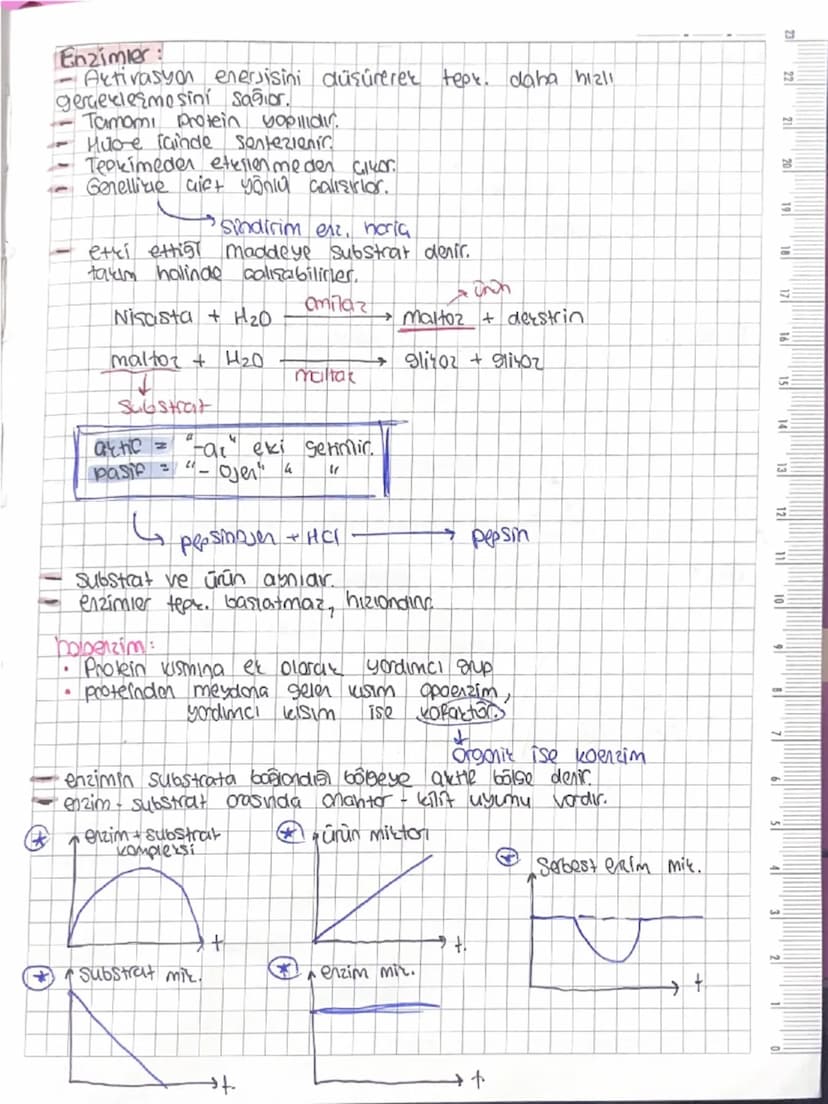 Enzimler:
- Aktivasyon enerjisini düşürerek tepk. daha hızlı
gerçekleşmesini sağlar.
- Tamamı protein yapılıdır.
- Hücre içinde sentezlenir.
- Tepkimeden etkilenmeden çıkar.
- Genellikle çift yönlü çalışırlar.
sindirim enz. hariç
- etki ettiği maddeye substrat denir.
takım halinde çalışabilirler.
ürün
amilaz
Nişasta + H2O → maltoz + dekstrin
maltoz + H2O → glikoz + glikoz
maltaz
substrat
aktif = "-az" eki getirilir.
pasif = "-ojen" " "
pepsinojen + HCl → pepsin
- substrat ve ürün aynıdır.
- enzimler tepk. başlatmaz, hızlandırır.
holoenzim:
• Protein kısmına ek olarak yardımcı grup
• proteinden meydana gelen kısım apoenzim,
yardımcı kısım ise kofaktör.
Organik ise koenzim
- enzimin substrata bağlandığı bölgeye aktif bölge denir.
- enzim - substrat arasında anahtar - kilit uyumu vardır.
enzim + substrat
kompleksi
t
ürün miktarı
t.
Serbest enzim mik.
t
substrat mik.
t.
enzim mik.
t.
23
22
21
20
19
18
17
16
15
14
13
12
11
10
9
8
7
6
5
4
3
2
1
0